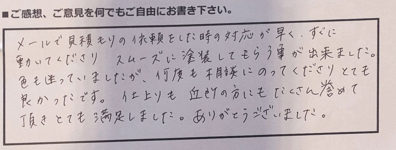 ■ご感想、ご意見を何でもご自由にお書き下さい。
メールで見積もりの依頼をした時の対応が早く、すぐに
動いてくださり スムーズに塗装してもらう事が出来ました。
色も迷っていましたが、何度も相談にのってくださりとても
良かったです。仕上りも近所の方にもたくさん誉めて
頂きとても満足しました。ありがとうございました。